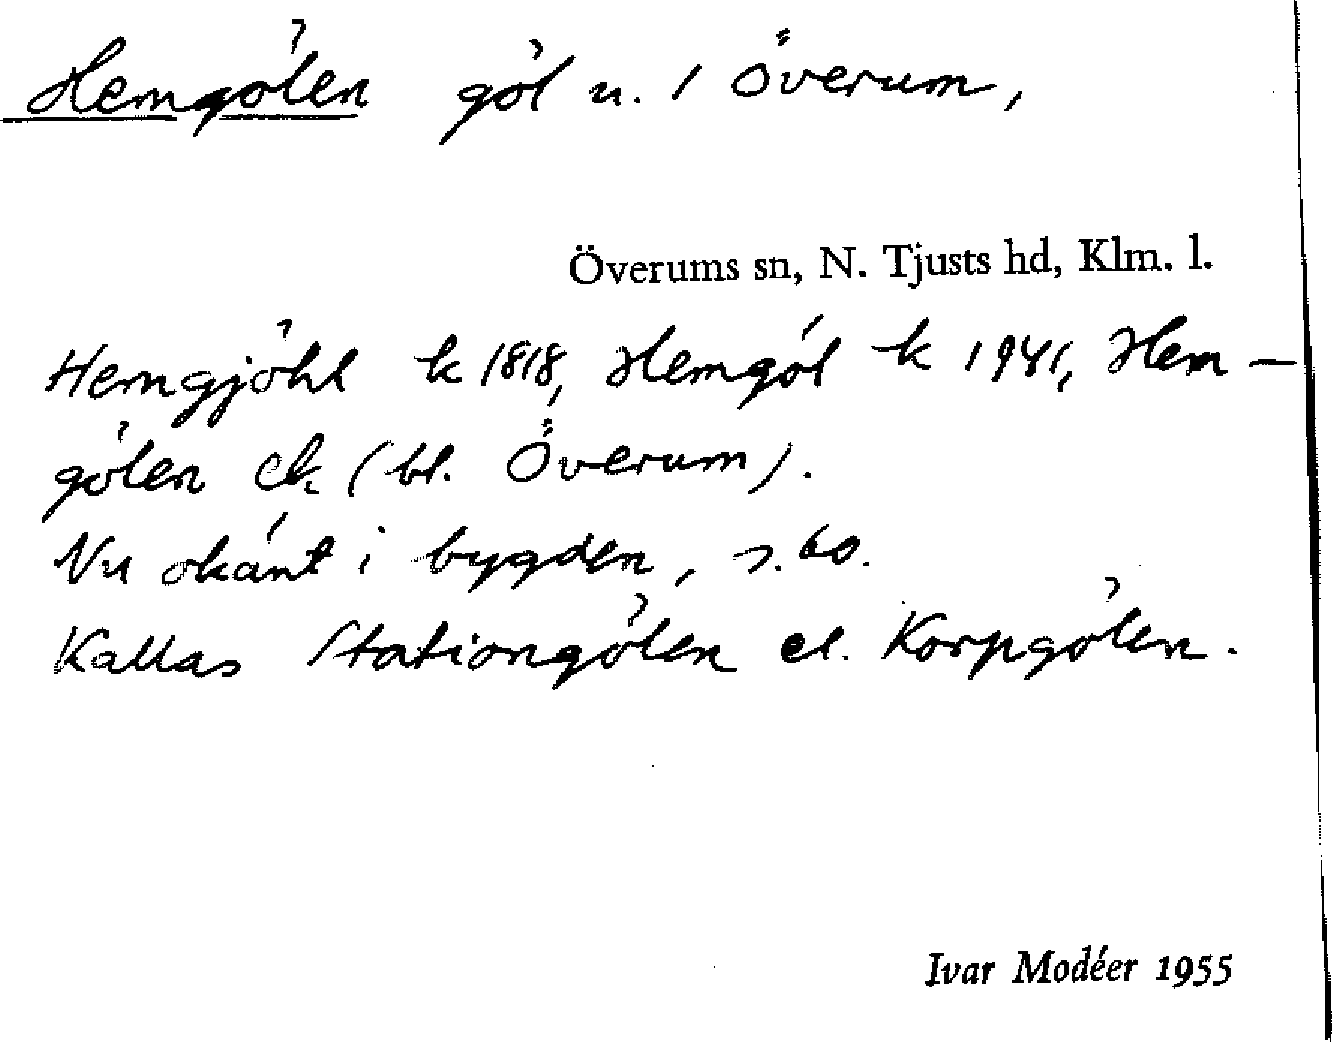 Hemgölen göl n. / Överum,
Överums sn, N. Tjusts hd, Klm. l.
Hemgjöhl k 1818, Hemgöl k 1941, Hem-
gölen ek (bl. Överum).
Nu okänt i bygden, s. 60.
Kallas Stationgölen el. Korpgölen.
Ivar Modéer 1955